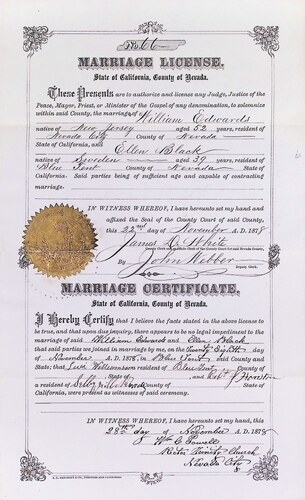 MARRIAGE LICENSE.
State of California, County of Nevada.
These Presents are to authorize and license any Judge, Justice of the
Peace, Mayor, Priest, or Minister of the Gospel of any denomination, to solemnize
within said County, the marriage of William Edwards
native of New Jersey aged 52 years, resident of
Nevada City County of Nevada
State of California, and Ellen Black
native of Sweden aged 39 years, resident of
Blue Tent County of Nevada State of
California. Said parties being of sufficient age and capable of contracting
marriage.
IN WITNESS WHEREOF, I have hereunto set my hand and
affixed the Seal of the County Court of said County,
this 22nd day of November A. D. 1878
James D. White
Clerk of the County Court for said Nevada County,
By John Webber
Deputy Clerk.
MARRIAGE CERTIFICATE.
State of California, County of Nevada.
I Hereby Certify that I believe the facts stated in the above license to
be true, and that upon due inquiry, there appears to be no legal impediment to the
marriage of said William Edwards and Ellen Black
that said parties were joined in marriage by me, on the Twenty Eighth day
of November A. D. 1878, in Blue Tent said County and
State; that resident of Blue Tent
County, State of and
a resident of County, State of
California, were present as witnesses of said ceremony.
IN WITNESS WHEREOF, I have hereunto set my hand, this
28th day of November A. D. 1878
Wm C Powell
Rector Trinity Church
Nevada City